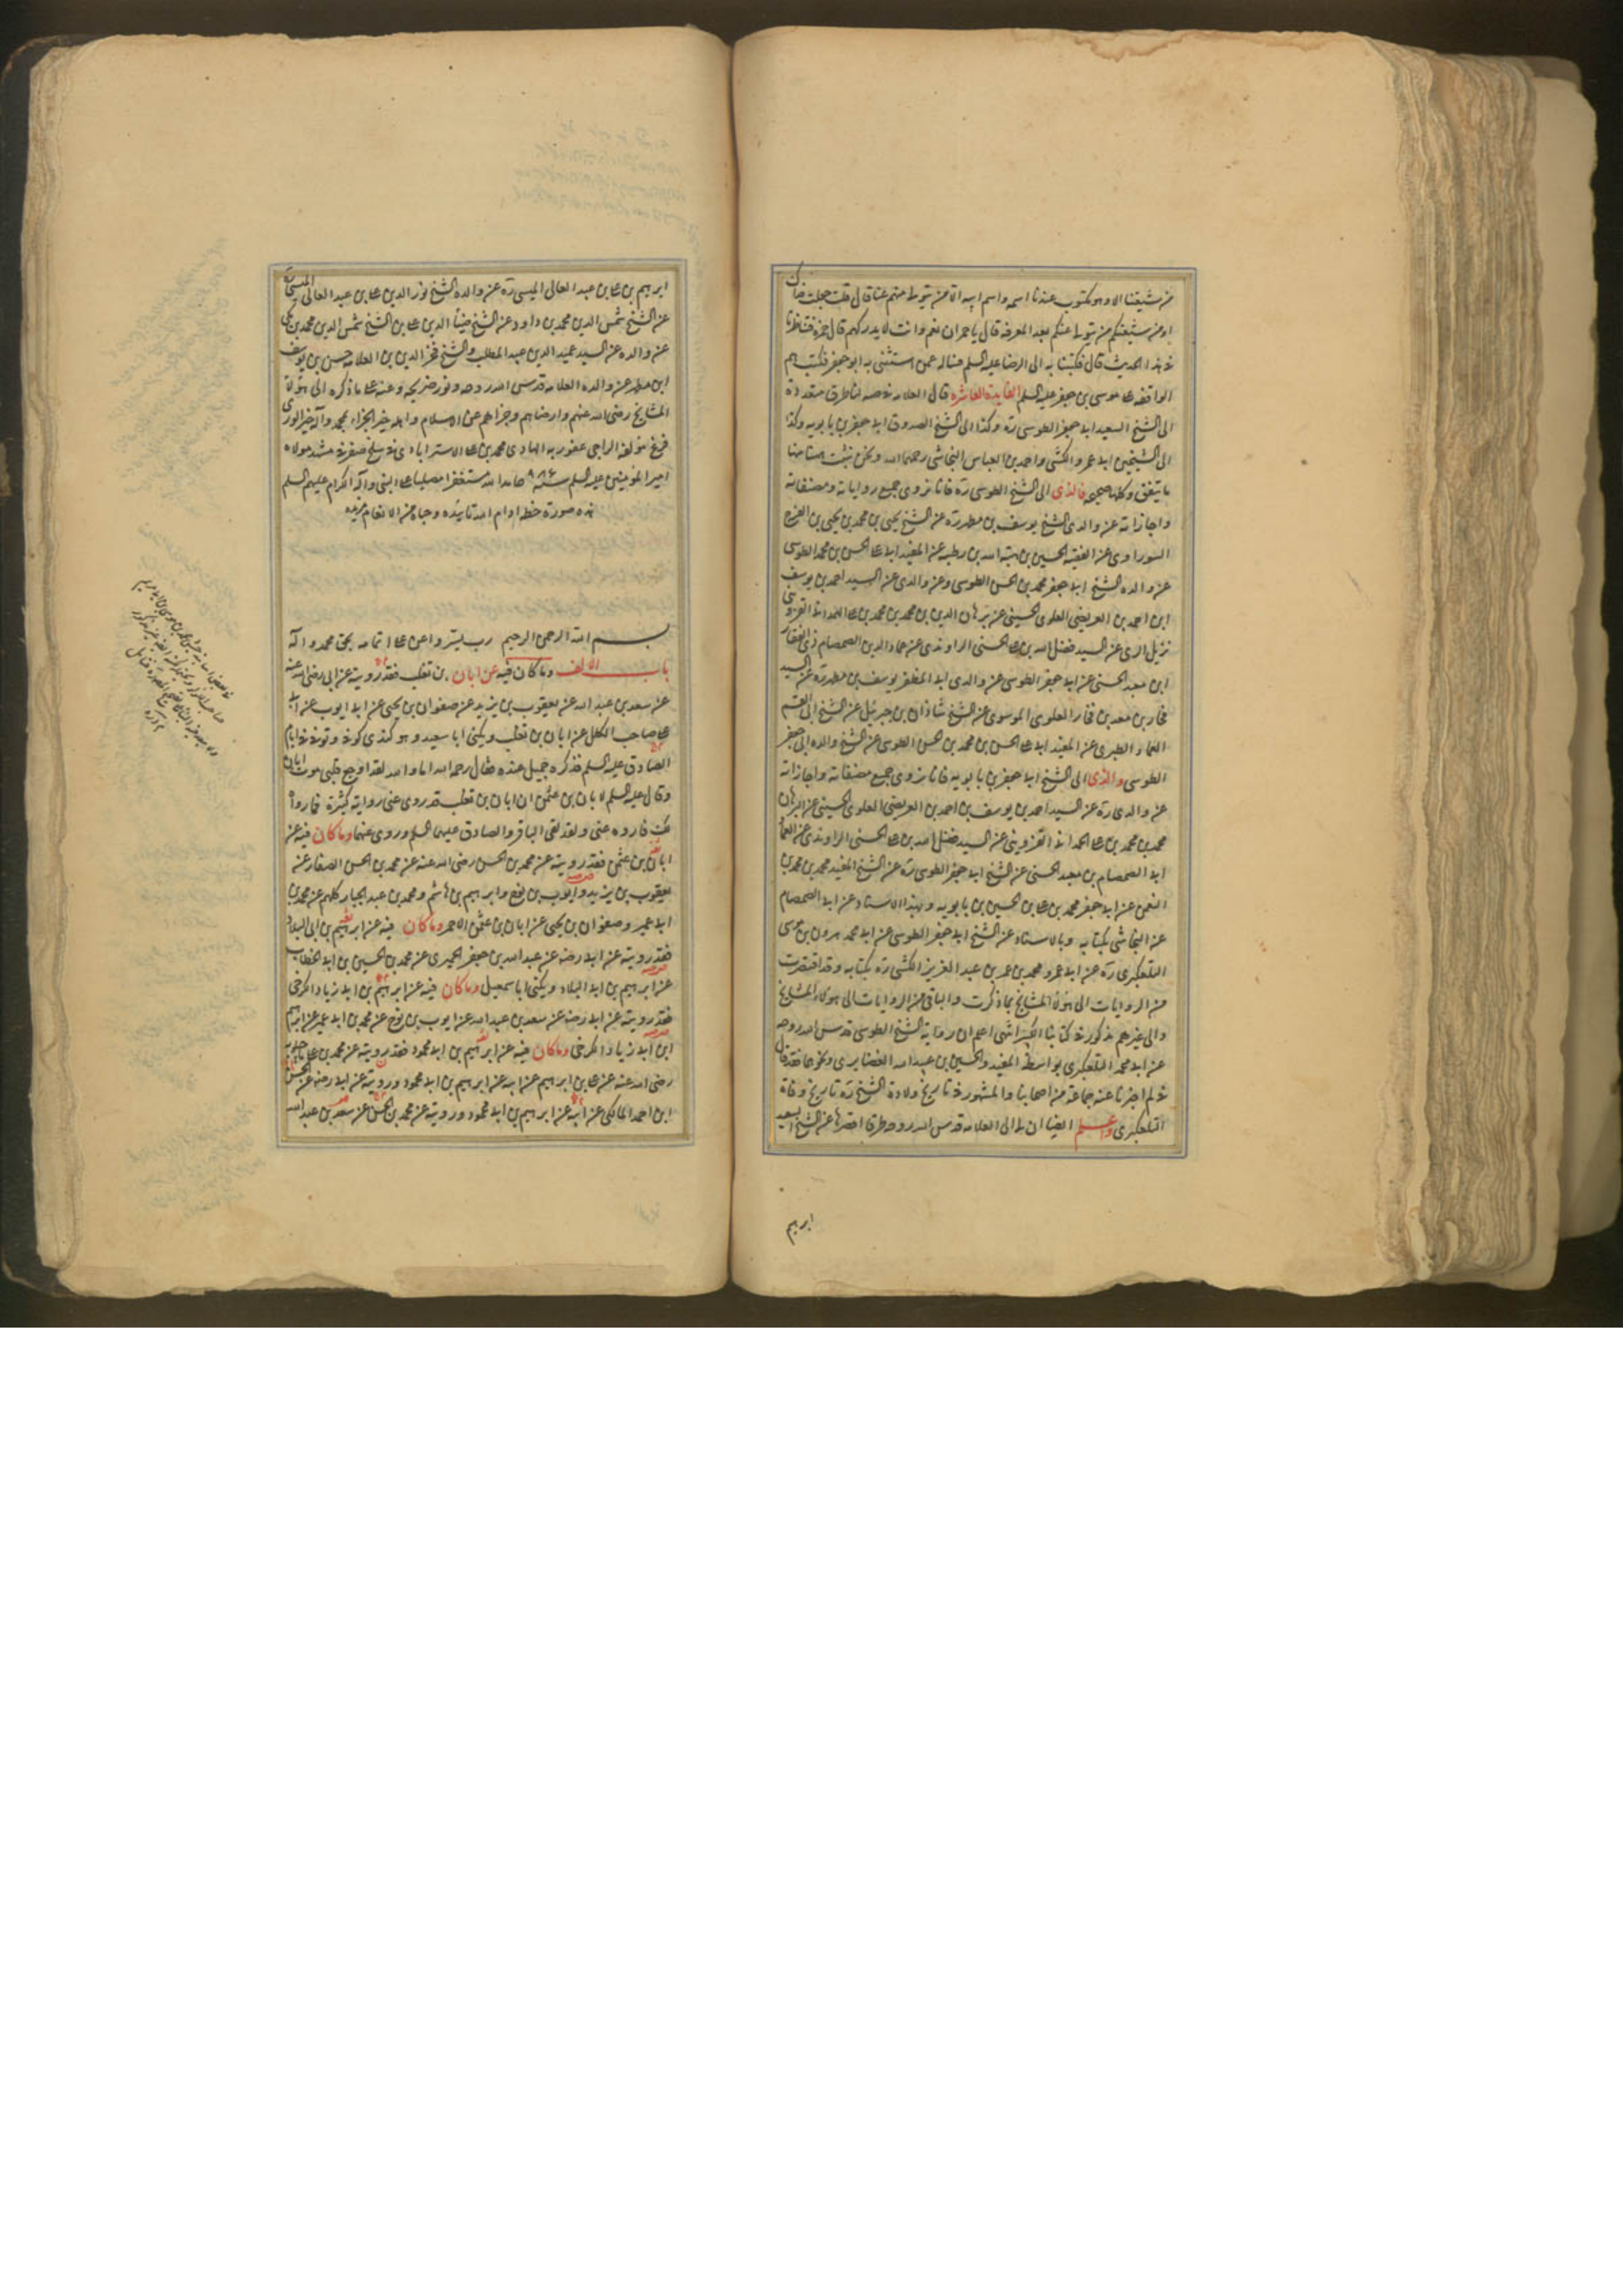 من شيعتنا الا وهو مكتوب عندنا اسمه واسم ابيه الا من يتولى منهم عنا قال قلت جعلت فداك
او من شيعتكم من يتولى عنكم بعد المعرفة قال يا حمران نعم وانت لا تدركهم قال حمزة فتناظرنا
في هذا الحديث قال فكتبنا به الى الرضا عليه السلم نساله عمن استثنى به ابو جعفر فكتب هم
الواقفة على موسى بن جعفر عليه السلم الفايدة العاشرة قال العلامة في صه لنا طرق متعددة
الى الشيخ السعيد ابى جعفر الطوسى ره وكذا الى الشيخ الصدوق ابى جعفر بن بابويه وكذا
الى الشيخين ابى عمرو الكشى واحمد بن العباس النجاشى رحمهما الله ونحن نثبت هنا منها
ما يتفق وكلها صحيحة فالذى الى الشيخ الطوسى ره فانا نروى جميع رواياته ومصنفاته
واجازاته عن والدى الشيخ يوسف بن مطهر ره عن الشيخ يحيى بن محمد بن يحيى بن الفرج
السوراوى عن الفقيه الحسين بن هبة الله بن رطبه عن المفيد ابى على الحسن بن محمد الطوسى
عن والده الشيخ ابى جعفر محمد بن الحسن الطوسى وعن والدى عن السيد احمد بن يوسف
ابن احمد بن العريضى العلوى الحسينى عن برهان الدين بن محمد بن محمد بن على الحمدانى القزوينى
نزيل الرى عن السيد فضل الله بن على الحسنى الراوندى عن عماد الدين الصمصام ذى الفقار
ابن معبد الحسنى عن ابى جعفر الطوسى عن والدى ابى المظفر يوسف بن مطهر ره عن السيد
فخار بن معد بن فخار العلوى الموسوى عن الشيخ شاذان بن جبرئيل عن الشيخ ابى القسم
العماد الطبرى عن المفيد ابى على الحسن بن محمد بن الحسن الطوسى عن الشيخ والده ابى جعفر
الطوسى والذى الى الشيخ ابى جعفر بن بابويه فانا نروى جميع مصنفاته واجازاته
عن والدى ره عن السيد احمد بن يوسف بن احمد بن العريضى العلوى الحسينى عن البرهان
محمد بن محمد بن على الحمدانى القزوينى عن السيد فضل الله بن على الحسنى الراوندى عن العماد
ابى الصمصام بن معبد الحسنى عن الشيخ ابى جعفر الطوسى ره عن الشيخ المفيد محمد بن محمد بن
النعمن عن ابى جعفر محمد بن على بن الحسين بن بابويه وبهذا الاسناد عن ابى الصمصام
عن النجاشى بكتابه وبالاسناد عن الشيخ ابى جعفر الطوسى عن ابى محمد هرون بن موسى
التلعكبرى ره عن ابى عمرو محمد بن عمر بن عبد العزيز الكشى ره بكتابه وقد اقتصرت
من الروايات الى هؤلاء المشايخ بما ذكرت والباقى من الروايات الى هؤلاء المشايخ
والى غيرهم مذكور فى كتابنا الكبير انتهى اعلم ان رواية الشيخ الطوسى قدس الله روحه
عن ابى محمد التلعكبرى بواسطة المفيد والحسين بن عبيد الله الغضايرى ونحوهما فقد قال
فى لم اخبرنا عنه جماعة من اصحابنا والمشهور فى تاريخ ولادة الشيخ ره تاريخ وفاة
التلعكبرى واعلم ايضا ان لى الى العلامة قدس الله روحه طرقا اخصرها عن الشيخ السعيد
ابرهيم
ابرهيم بن على بن عبد العالى الميسى ره عن والده الشيخ نور الدين على بن عبد العالى الميسى ره
عن الشيخ شمس الدين محمد بن داود عن الشيخ ضيأ الدين على بن الشيخ شمس الدين محمد بن مكى
عن والده عن السيد عميد الدين عبد المطلب والشيخ فخر الدين بن العلامة حسن بن يوسف
ابن مطهر عن والده العلامة قدس الله روحه ونور ضريحه وعنه على ما ذكره الى هؤلاء
المشايخ رضى الله عنهم وارضاهم وجزاهم عن الاسلام واهله خير الجزاء بمحمد وآله خير الورى
فرغ مؤلفه الراجى عفو ربه الهادى محمد بن على الاسترابادى فى سلخ صفر فى مشهد مولاه
امير المؤمنين عليه السلم سنة ٩٨٦ حامدا لله مستغفرا مصليا على النبى وآله الكرام عليهم السلم
هذه صورة خطه ادام الله تاييده وحباه من الانعام مزيده
بسم الله الرحمن الرحيم رب يسر واعن على اتمامه بحق محمد وآله
باب الالف وما كان فيه عن ابان بن تغلب فقد رويته عن ابى رضى الله عنه
عن سعد بن عبد الله عن يعقوب بن يزيد عن صفوان بن يحيى عن ابى ايوب عن ابى
على صاحب الكلل عن ابان بن تغلب ويكنى ابا سعيد وهو كندى كوفى وتوفى فى ايام
الصادق عليه السلم فذكره جميل عنده فقال رحمه الله اما والله لقد اوجع قلبى موت ابان
وقال عليه السلم لابان بن عثمن ان ابان بن تغلب قد روى عنى رواية كثيرة فما رواه
لك فاروه عنى ولقد لقى الباقر والصادق عليهما السلم وروى عنهما وما كان فيه عن
ابان بن عثمن فقد رويته عن محمد بن الحسن رضى الله عنه عن محمد بن الحسن الصفار عن
يعقوب بن يزيد وايوب بن نوح وابرهيم بن هاشم ومحمد بن عبد الجبار كلهم عن محمد بن
ابى عمير وصفوان بن يحيى عن ابان بن عثمن الاحمر وما كان فيه عن ابرهيم بن ابى البلاد
فقد رويته عن ابى رضه عن عبد الله بن جعفر الحميرى عن محمد بن الحسين بن ابى الخطاب
عن ابرهيم بن ابى البلاد ويكنى ابا اسمعيل وما كان فيه عن ابرهيم بن ابى زياد الكرخى
فقد رويته عن ابى رضه عن سعد بن عبد الله عن ايوب بن نوح عن محمد بن ابى عمير عن ابرهيم
ابن ابى زياد الكرخى وما كان فيه عن ابرهيم بن ابى محمود فقد رويته عن محمد بن على ماجيلويه
رضى الله عنه عن على بن ابرهيم عن ابيه عن ابرهيم بن ابى محمود ورويته عن ابى رضه عن الحسن
ابن احمد المالكى عن ابيه عن ابرهيم بن ابى محمود ورويته عن محمد بن الحسن عن سعد بن عبد الله